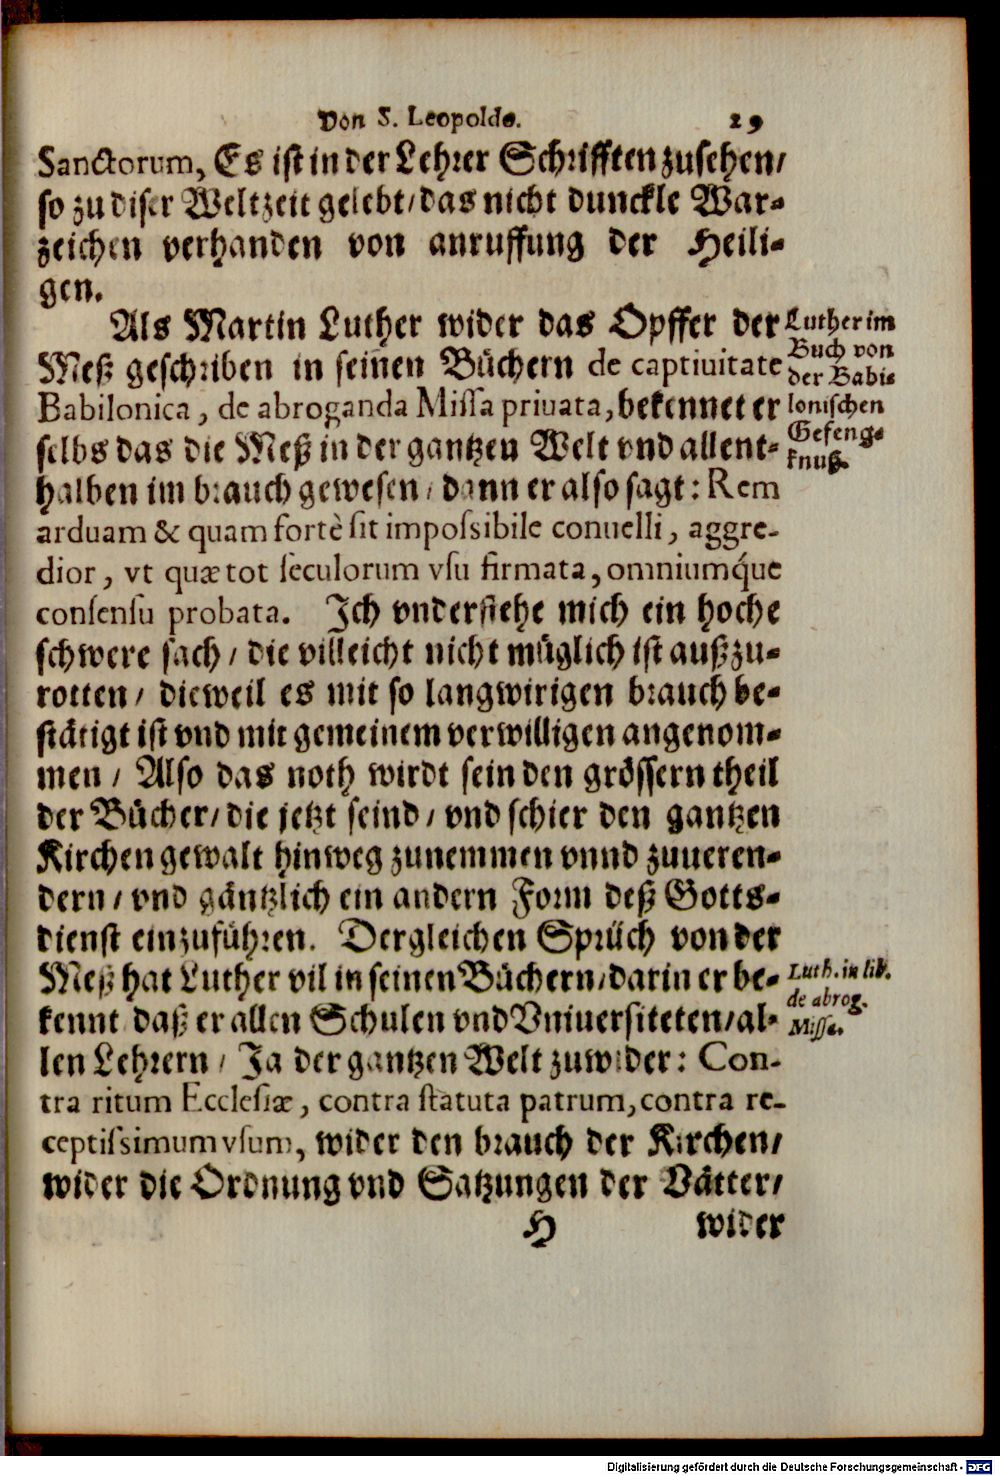 Von S. Leopolde. 29
Sanctorum, Es ist in der Lehrer Schrifften zusehen/
so zu diser Weltzeit gelebt/ das nicht dunckle War-
zeichen verhanden von anruffung der Heili-
gen.
Als Martin Luther wider das Opffer der
Meß geschriben in seinen Büchern de captiuitate
Babilonica, de abroganda Missa priuata, bekennet er
selbs das die Meß in der gantzen Welt vnd allent-
halben im brauch gewesen/ dann er also sagt: Rem
arduam & quam fortè sit impossibile conuelli, aggre-
dior, vt quæ tot seculorum vsu firmata, omniumq́ue
consensu probata. Ich vnderstehe mich ein hoche
schwere sach/ die villeicht nicht müglich ist außzu-
rotten/ dieweil es mit so langwirigen brauch be-
stätigt ist vnd mit gemeinem verwilligen angenom-
men/ Also das noth wirdt sein den grössern theil
der Bücher/ die jetzt seind/ vnd schier den gantzen
Kirchen gewalt hinweg zunemmen vnnd zuueren-
dern/ vnd gäntzlich ein andern Form deß Gotts-
dienst einzuführen. Dergleichen Sprüch von der
Meß hat Luther vil in seinen Büchern/ darin er be-
kennt daß er allen Schulen vnd Vniuersiteten/ al-
len Lehrern/ Ja der gantzen Welt zuwider: Con-
tra ritum Ecclesiæ, contra statuta patrum, contra re-
ceptissimum vsum, wider den brauch der Kirchen/
wider die Ordnung vnd Satzungen der Vätter/
H wider
Luther im
Buch von
der Babi-
lonischen
Gefeng-
knuß.
Luth. in lib.
de abrog.
Missa.
Digitalisierung gefördert durch die Deutsche Forschungsgemeinschaft - DFG